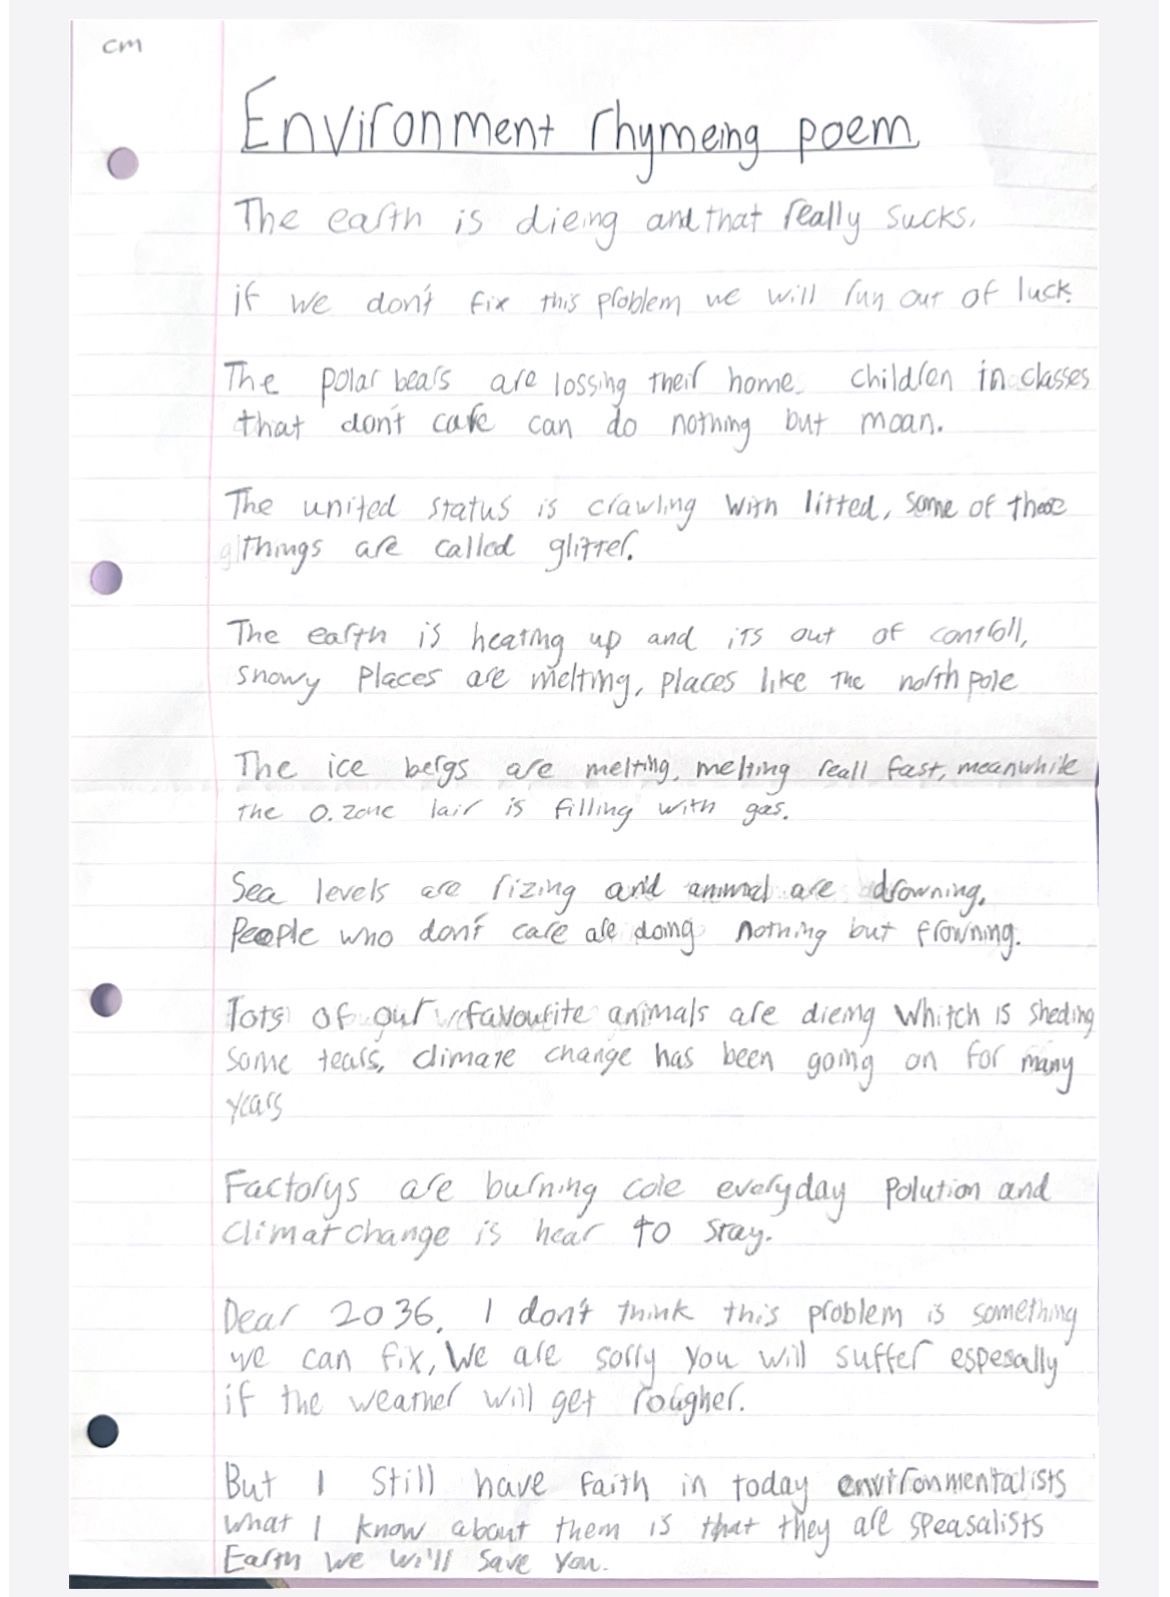 cm
Environment rhymeing poem
The earth is dieing and that really sucks,
if we don't fix this problem we will run out of luck.
The polar bears are lossing their home. children in classes
that don't care can do nothing but moan.
The united status is crawling with litted, some of these
things are called glitter.
The earth is heating up and its out of controll,
snowy places are melting, places like the north pole
The ice bergs are melting, melting reall fast, meanwhile
the o.zone lair is filling with gas.
Sea levels are rizing and animal are drowning.
People who don't care are doing nothing but frowning.
Tots of our favourite animals are dieing whitch is sheding
some tears, climate change has been going on for many
years
Factorys are burning cole everyday polution and
climat change is hear to stay.
Dear 2036, I don't think this problem is something
we can fix, We are sorry you will suffer espesally
if the weather will get rougher.
But I still have faith in today environmentalists
what I know about them is that they are speasalists
Earth we we'll save you.